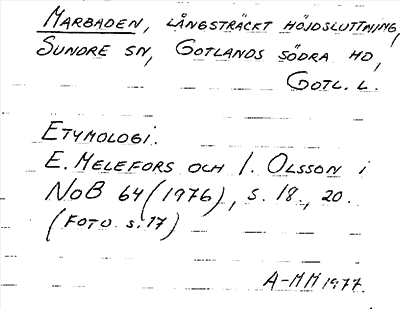 MARBADEN, LÅNGSTRÄCKT HÖJDSLUTTNING,
SUNDRE SN, GOTLANDS SÖDRA HD,
GOTL. L.
ETYMOLOGI.
E. MELEFORS OCH I. OLSSON i
NoB 64 (1976), s. 18., 20.
(FOTO s. 17)
A-MM 1977.